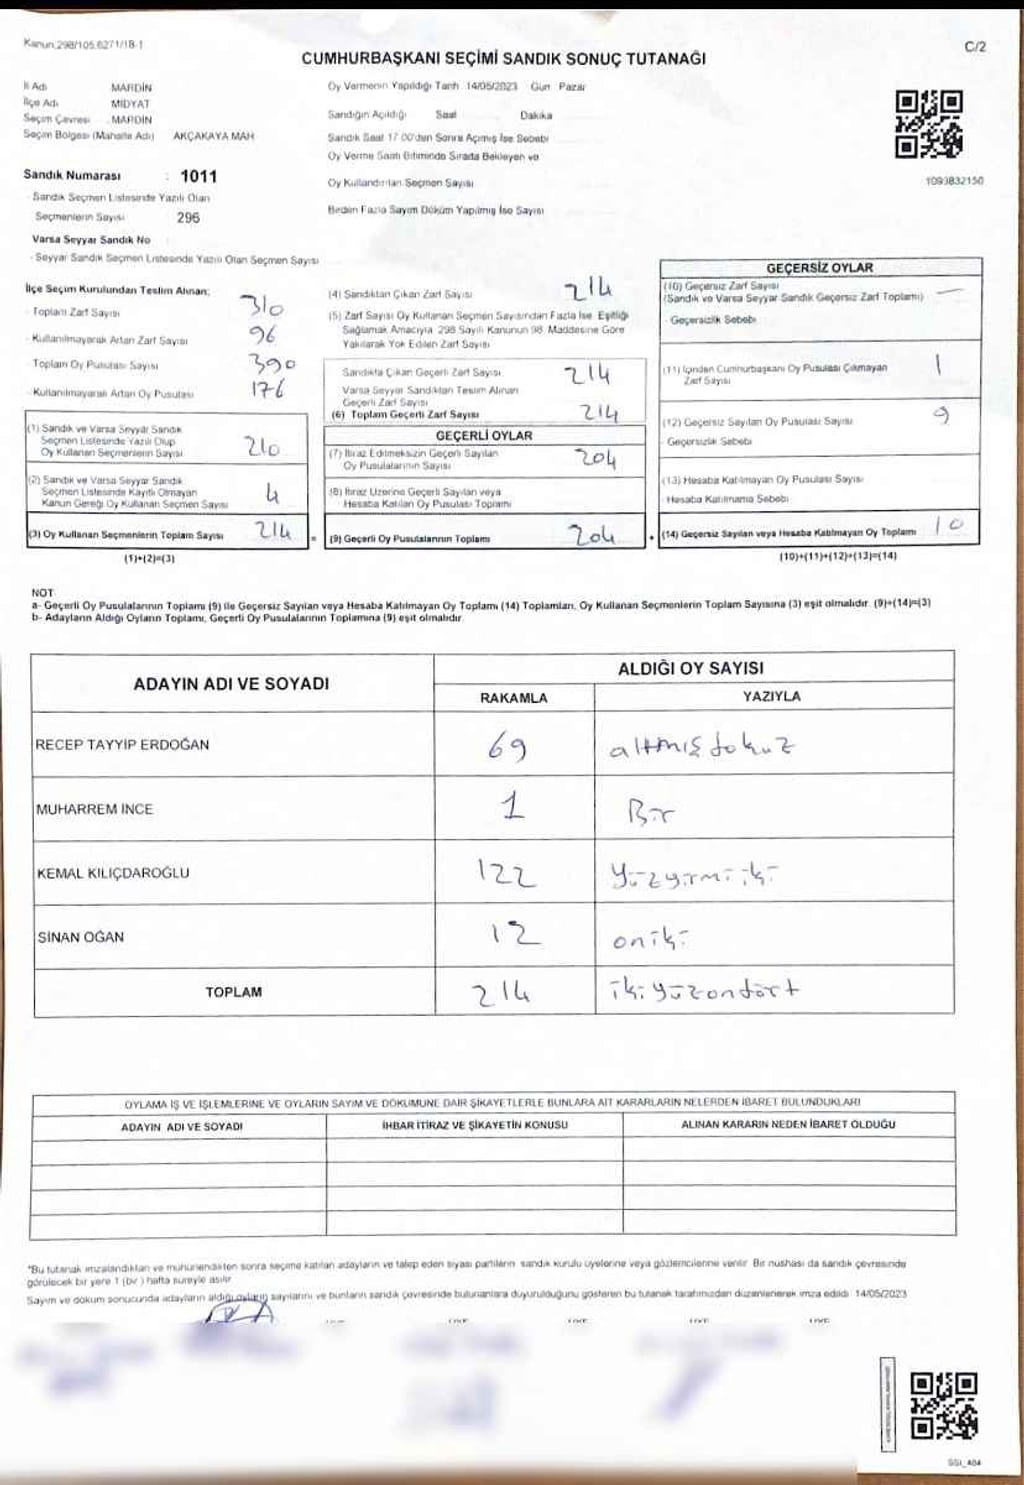 Kanun.298/105.6271/18-1
C/2
CUMHURBAŞKANI SEÇİMİ SANDIK SONUÇ TUTANAĞI
İl Adı MARDİN
İlçe Adı MİDYAT
Seçim Çevresi : MARDİN
Seçim Bölgesi (Mahalle Adı) AKÇAKAYA MAH
Sandık Numarası : 1011
- Sandık Seçmen Listesinde Yazılı Olan
Seçmenlerin Sayısı 296
Varsa Seyyar Sandık No :
- Seyyar Sandık Seçmen Listesinde Yazılı Olan Seçmen Sayısı
Oy Vermenin Yapıldığı Tarih 14/05/2023 Gün Pazar
Sandığın Açıldığı Saat Dakika
Sandık Saat 17:00'den Sonra Açmış İse Sebebi
Oy Verme Saati Bitiminde Sırada Bekleyen ve
Oy Kullandırılan Seçmen Sayısı
Birden Fazla Sayım Döküm Yapılmış İse Sayısı
1093832150
İlçe Seçim Kurulundan Teslim Alınan;
- Toplam Zarf Sayısı 310
- Kullanılmayarak Artan Zarf Sayısı 96
- Toplam Oy Pusulası Sayısı 390
- Kullanılmayarak Artan Oy Pusulası 176
(1) Sandık ve Varsa Seyyar Sandık
Seçmen Listesinde Yazılı Olup
Oy Kullanan Seçmenlerin Sayısı 210
(2) Sandık ve Varsa Seyyar Sandık
Seçmen Listesinde Kayıtlı Olmayan
Kanun Gereği Oy Kullanan Seçmen Sayısı 4
(3) Oy Kullanan Seçmenlerin Toplam Sayısı 214
(1)+(2)=(3)
(4) Sandıktan Çıkan Zarf Sayısı 214
(5) Zarf Sayısı Oy Kullanan Seçmen Sayısından Fazla İse, Eşitliği
Sağlamak Amacıyla 298 Sayılı Kanunun 98. Maddesine Göre
Yakılarak Yok Edilen Zarf Sayısı
Sandıkta Çıkan Geçerli Zarf Sayısı 214
Varsa Seyyar Sandıktan Teslim Alınan
Geçerli Zarf Sayısı
(6) Toplam Geçerli Zarf Sayısı 214
GEÇERLİ OYLAR
(7) İtiraz Edilmeksizin Geçerli Sayılan
Oy Pusulalarının Sayısı 204
(8) İtiraz Üzerine Geçerli Sayılan veya
Hesaba Katılan Oy Pusulası Toplamı
= (9) Geçerli Oy Pusulalarının Toplamı 204
GEÇERSİZ OYLAR
(10) Geçersiz Zarf Sayısı —
(Sandık ve Varsa Seyyar Sandık Geçersiz Zarf Toplamı)
- Geçersizlik Sebebi
(11) İçinden Cumhurbaşkanı Oy Pusulası Çıkmayan 1
Zarf Sayısı
(12) Geçersiz Sayılan Oy Pusulası Sayısı 9
- Geçersizlik Sebebi
(13) Hesaba Katılmayan Oy Pusulası Sayısı
- Hesaba Katılmama Sebebi
+ (14) Geçersiz Sayılan veya Hesaba Katılmayan Oy Toplamı 10
(10)+(11)+(12)+(13)=(14)
NOT
a- Geçerli Oy Pusulalarının Toplamı (9) ile Geçersiz Sayılan veya Hesaba Katılmayan Oy Toplamı (14) Toplamları, Oy Kullanan Seçmenlerin Toplam Sayısına (3) eşit olmalıdır. (9)+(14)=(3)
b- Adayların Aldığı Oyların Toplamı, Geçerli Oy Pusulalarının Toplamına (9) eşit olmalıdır.
ADAYIN ADI VE SOYADI ALDIĞI OY SAYISI
RAKAMLA YAZIYLA
RECEP TAYYİP ERDOĞAN 69 altmış dokuz
MUHARREM İNCE 1 Bir
KEMAL KILIÇDAROĞLU 122 yüzyirmi iki
SİNAN OĞAN 12 oniki
TOPLAM 214 ikiyüzondört
OYLAMA İŞ VE İŞLEMLERİNE VE OYLARIN SAYIM VE DÖKÜMÜNE DAİR ŞİKAYETLERLE BUNLARA AİT KARARLARIN NELERDEN İBARET BULUNDUKLARI
ADAYIN ADI VE SOYADI İHBAR İTİRAZ VE ŞİKAYETİN KONUSU ALINAN KARARIN NEDEN İBARET OLDUĞU
*Bu tutanak imzalandıktan ve mühürlendikten sonra seçime katılan adayların ve talep eden siyasi partilerin sandık kurulu üyelerine veya gözlemcilerine verilir. Bir nüshası da sandık çevresinde
görülecek bir yere 1 (bir) hafta süreyle asılır.
Sayım ve döküm sonucunda adayların aldığı oyların sayılarını ve bunların sandık çevresinde bulunanlara duyurulduğunu gösteren bu tutanak tarafımızdan düzenlenerek imza edildi. 14/05/2023